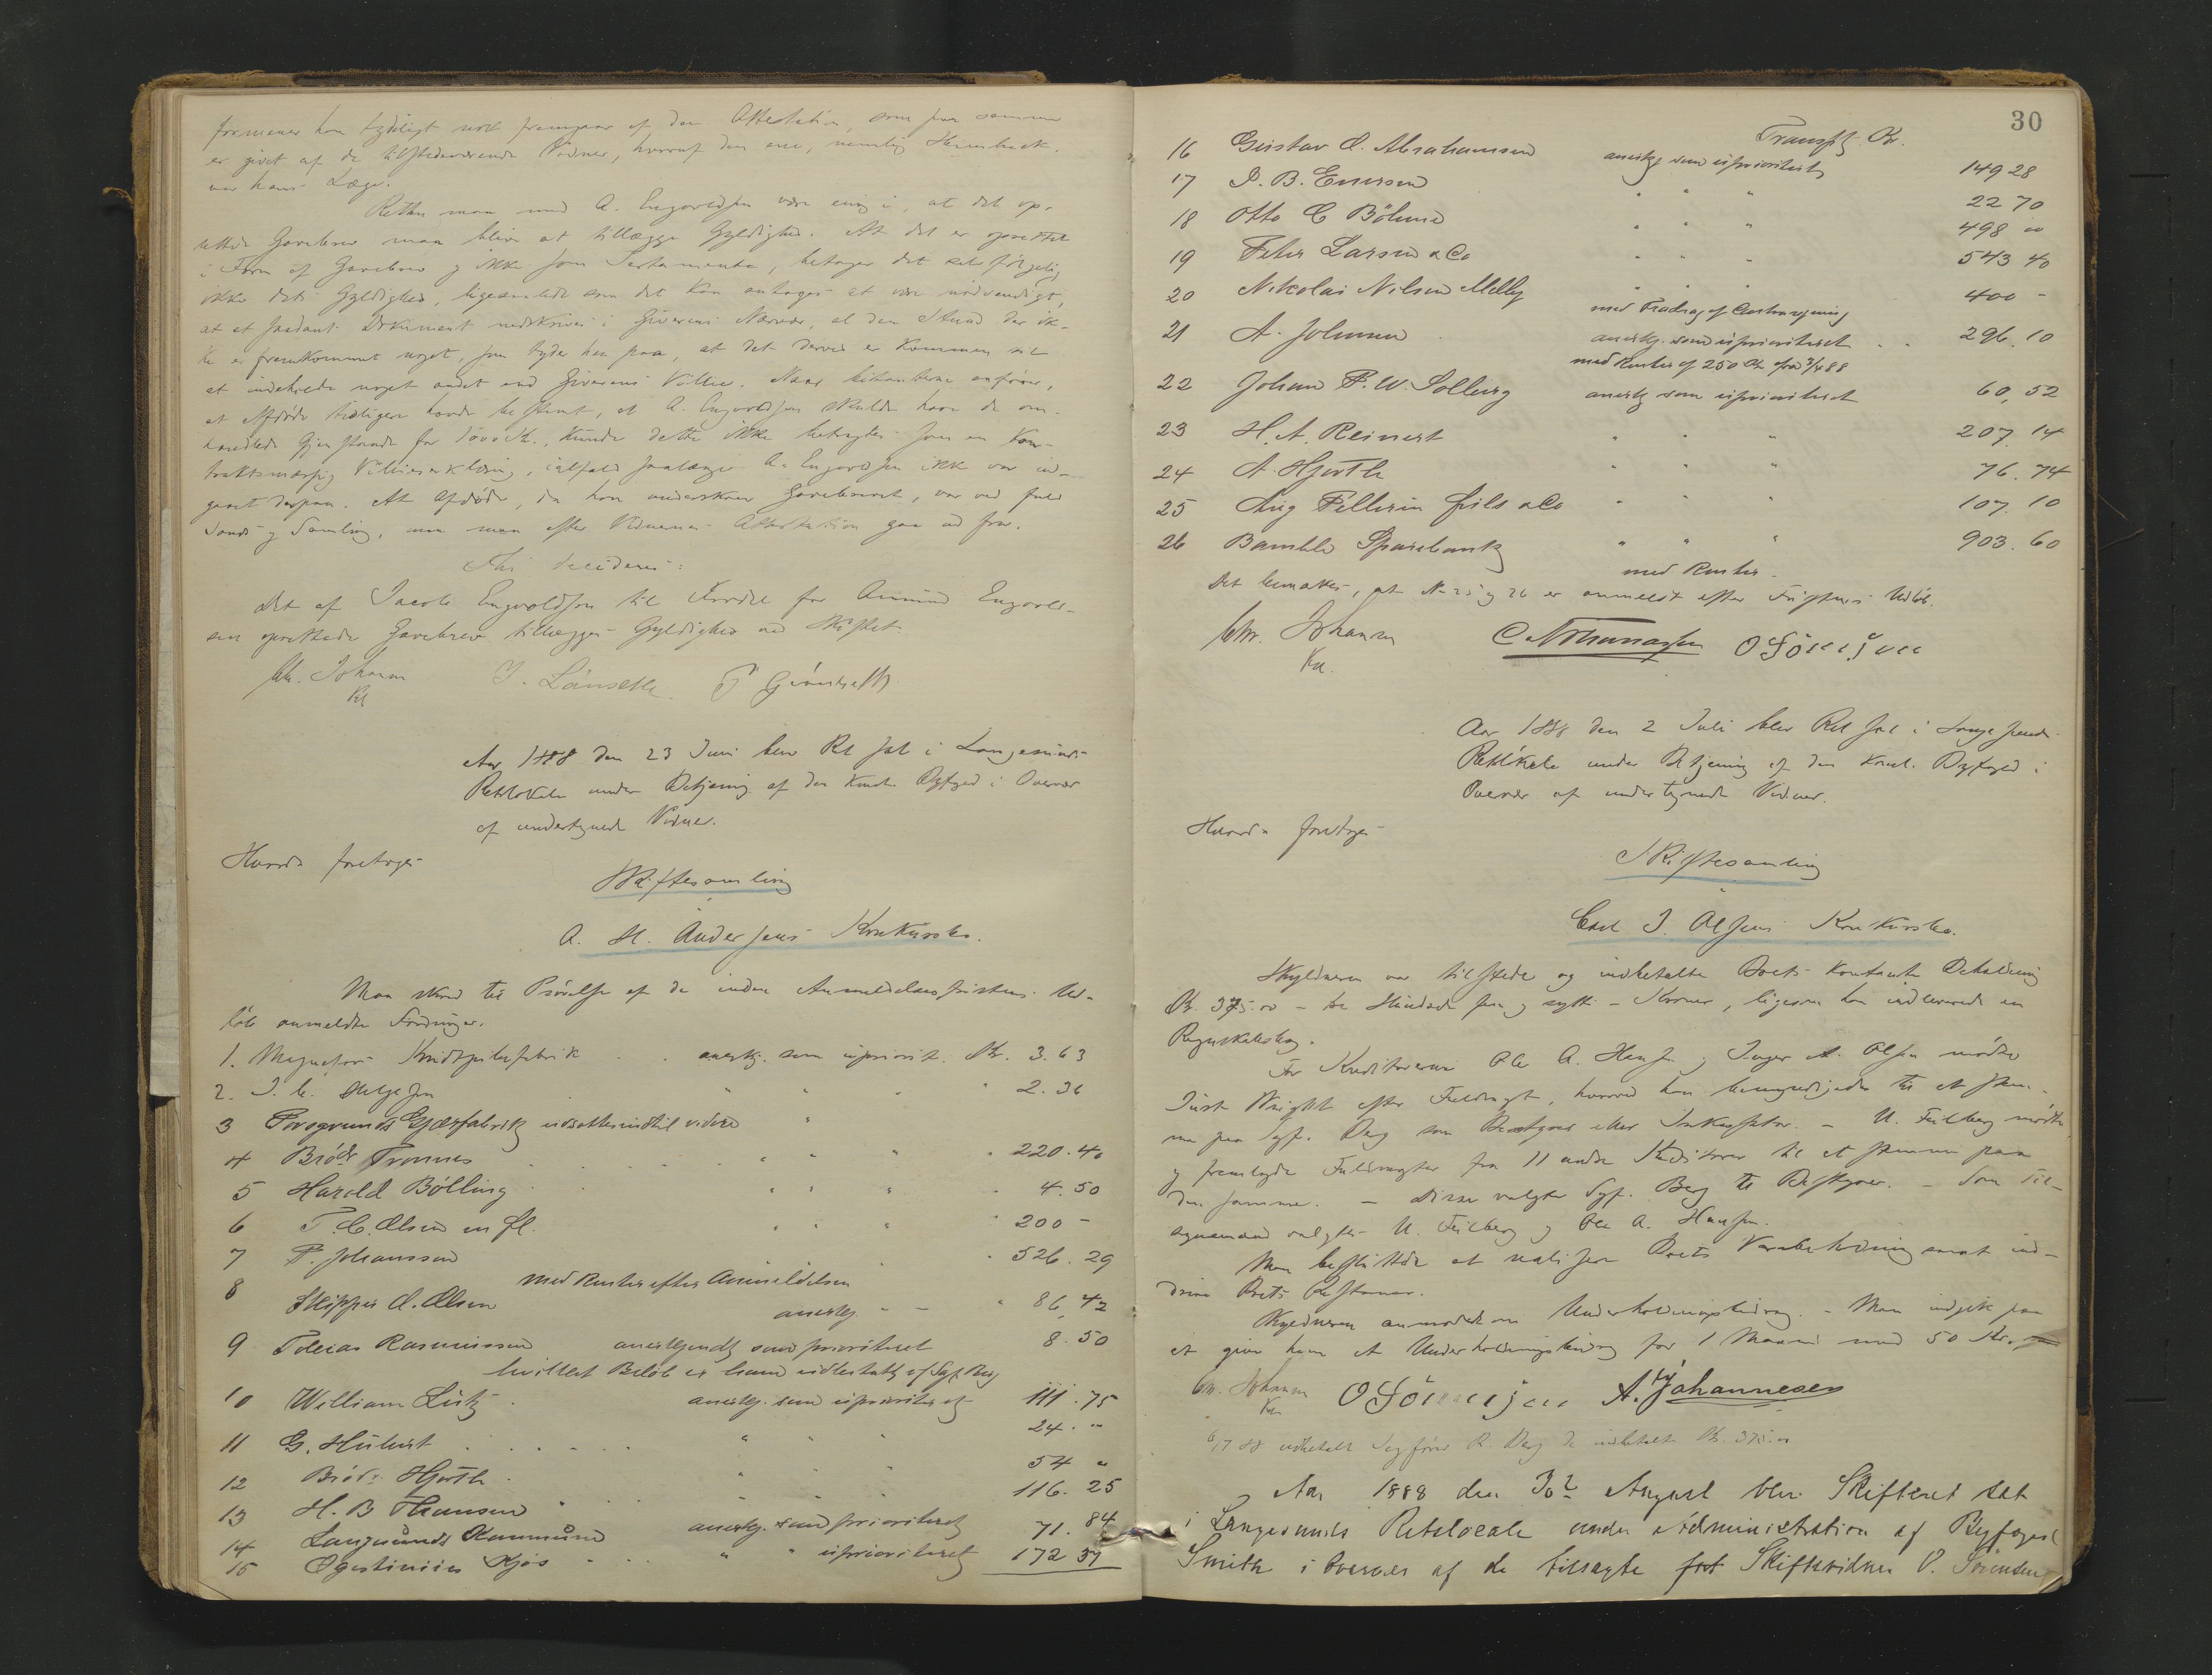 formener han tydeligt nok fremgaar af den Attestation, som paa samme
er givet af de tilstedeværende Vidner, hvoraf den ene, nemlig
var hans Læge.
Retten maa med A. Engvoldsen være enig i, at det op-
rettede Gavebrev maa blive at tillægge Gyldighed. At det er oprettet
i Form af Gavebrev og ikke som Testamente, betager det selvfølgelig
ikke dets Gyldighed, ligesaalidt som det kan antages at være nødvendigt,
at et saadant Dokument nedskrives i Giverens Nærvær, al den Stund der ik-
ke er fremkommet noget, som tyder hen paa, at det derved er kommen til
at indeholde noget andet end Giverens Villie. Naar citanterne anfører,
at Afdøde tidligere havde bestemt, at A. Engvoldsen skulde have de om-
handlede Gjenstande for 1000 Kr., kunde dette ikke betragtes som en Kon-
traktsmæssig Villieserklæring, ialfald saalænge A. Engvoldsen ikke var ind-
gaaet derpaa. At Afdøde, da han underskrev Gavebrevet, var ved fuld
Sands og Samling, maa man efter Vidnernes Attestation gaa ud fra.
Thi decideres:
Det af Jacob Engvoldsen til Fordel for Amund Engvold-
sen oprettede Gavebrev tillægges Gyldighed ved Skiftet.
Chr. Johansen
Kst
Aar 1888 den 23 Juni blev Ret sat i Langesunds
Retslokale under Betjening af den konst. Byfoged i Overvær
af undertegnede Vidner.
Hvorda foretoges
Skiftesamling
i
A. H. Andersens Konkursbo.
Man skred til Prøvelse af de inden Anmeldelsesfristens Ud-
løb anmeldte Fordringer.
1. Magnefors Knidspilsfabrik . . anerkj. som upriorit. Kr. 3.63
2. J. C. Helgesen " " " " 2.36
3 Porsgrunds Gjærfabrik udsattes indtil videre "
4 Brødr Tronnes . . . . " " " " 220.40
5 Harald Bölling . " " " " 4.50
6 T. C. Olsen m fl. " " " " 200 -
7 P. Johanssen " 526.29
med Renter efter Anmeldelsen
8 Skipper A. Olsen anerkj. - - " 86,42
9 Tobias Rasmussen anerkjendt som prioriteret 8.50
hvilket Beløb er ham udbetalt af Sagf. Berg
10 William Lütz . anerkj. som uprioriteret 111.75
11 G. Hülurt . . . . . " " " 24. "
12 Brødr. Hjorth . " " " 54 "
13 H. B Thamsen " " " " 116.25
14 Langesunds Kommune anerkj. som prioriteret 71.84
15 Ogestinius Kjøs . . " " uprioriteret 172 37
30
Transpt. Kr.
16 Gustav A. Abrahamsen anerkj som uprioriteret 149 28
17 P. B. Enersen " " " 22 70
18 Otto C Böhme " " " 498 00
19 Peter Larsen & Co " " " 543 40
20 Nikolai Nilsen Melby " " " 400 -
med Fradrag af
21 A. Johnsen anerkj. som uprioriteret . . 296.10
med Renter af 250 Kr fra 3/4 88
22 Johan F. W. Solberg anerkj som uprioriteret 60,52
23 H. A. Reinert " " " 207.14
24 A. Hjorth " " " 76.74
25 Aug Pellerin fils & Co " " " 107.10
26 Bamble Sparebank " " " 903.60
med Renter.
Det bemærkes, at No 25 og 26 er anmeldt efter Fristens Udløb.
Chr. Johansen
Kst.
Aar 1888 den 2 Juli blev Ret sat i Langesunds
Retslokale under Betjening af den konst. Byfoged i
Overvær af undertegnede Vidner.
Hvorda foretoges
Skiftesamling
i
Carl J. Olsens Konkursbo.
Skyldneren var tilstede og indbetalte Boets kontante Beholdning
Kr. 375.00 - tre Hundrede fem og sytti - Kroner, ligesom han indleverede en
Regnskabsbog.
For Kreditorerne Ole A. Hansen og Inger A. Olsen mødte
Just Wright efter Fuldmagt, hvorved han bemyndigedes til at stem-
me paa Sagf. Berg som Bestyrer eller Inkassator. - U. Feilberg mødte
og fremlagde Fuldmagter fra 11 andre Kreditorer til at stemme paa
den samme. - Disse valgte Sagf. Berg til Bestyrer. - Som Til-
synsmænd valgtes U. Feilberg og Ole A. Hansen.
Man besluttede at realisere Boets Varebeholdning samt ind-
drive Boets Restancer.
Skyldneren anmodede om Underholdningsbidrag. - Man indgik paa
at give ham et Underholdningsbidrag for 1 Maaned med 50 Kr.
Chr. Johansen
Kst
O Sörensen A. Johannesen
6/7 88 udbetalt Sagfører R. Berg de indbetalte Kr. 375.00
Aar 1888 den 30te August blev Skifteret sat
i Langesunds Retslocale under Administration af Byfoged
Smith i Overvær af de tilsagte fast Skiftevidner O. Sørensen